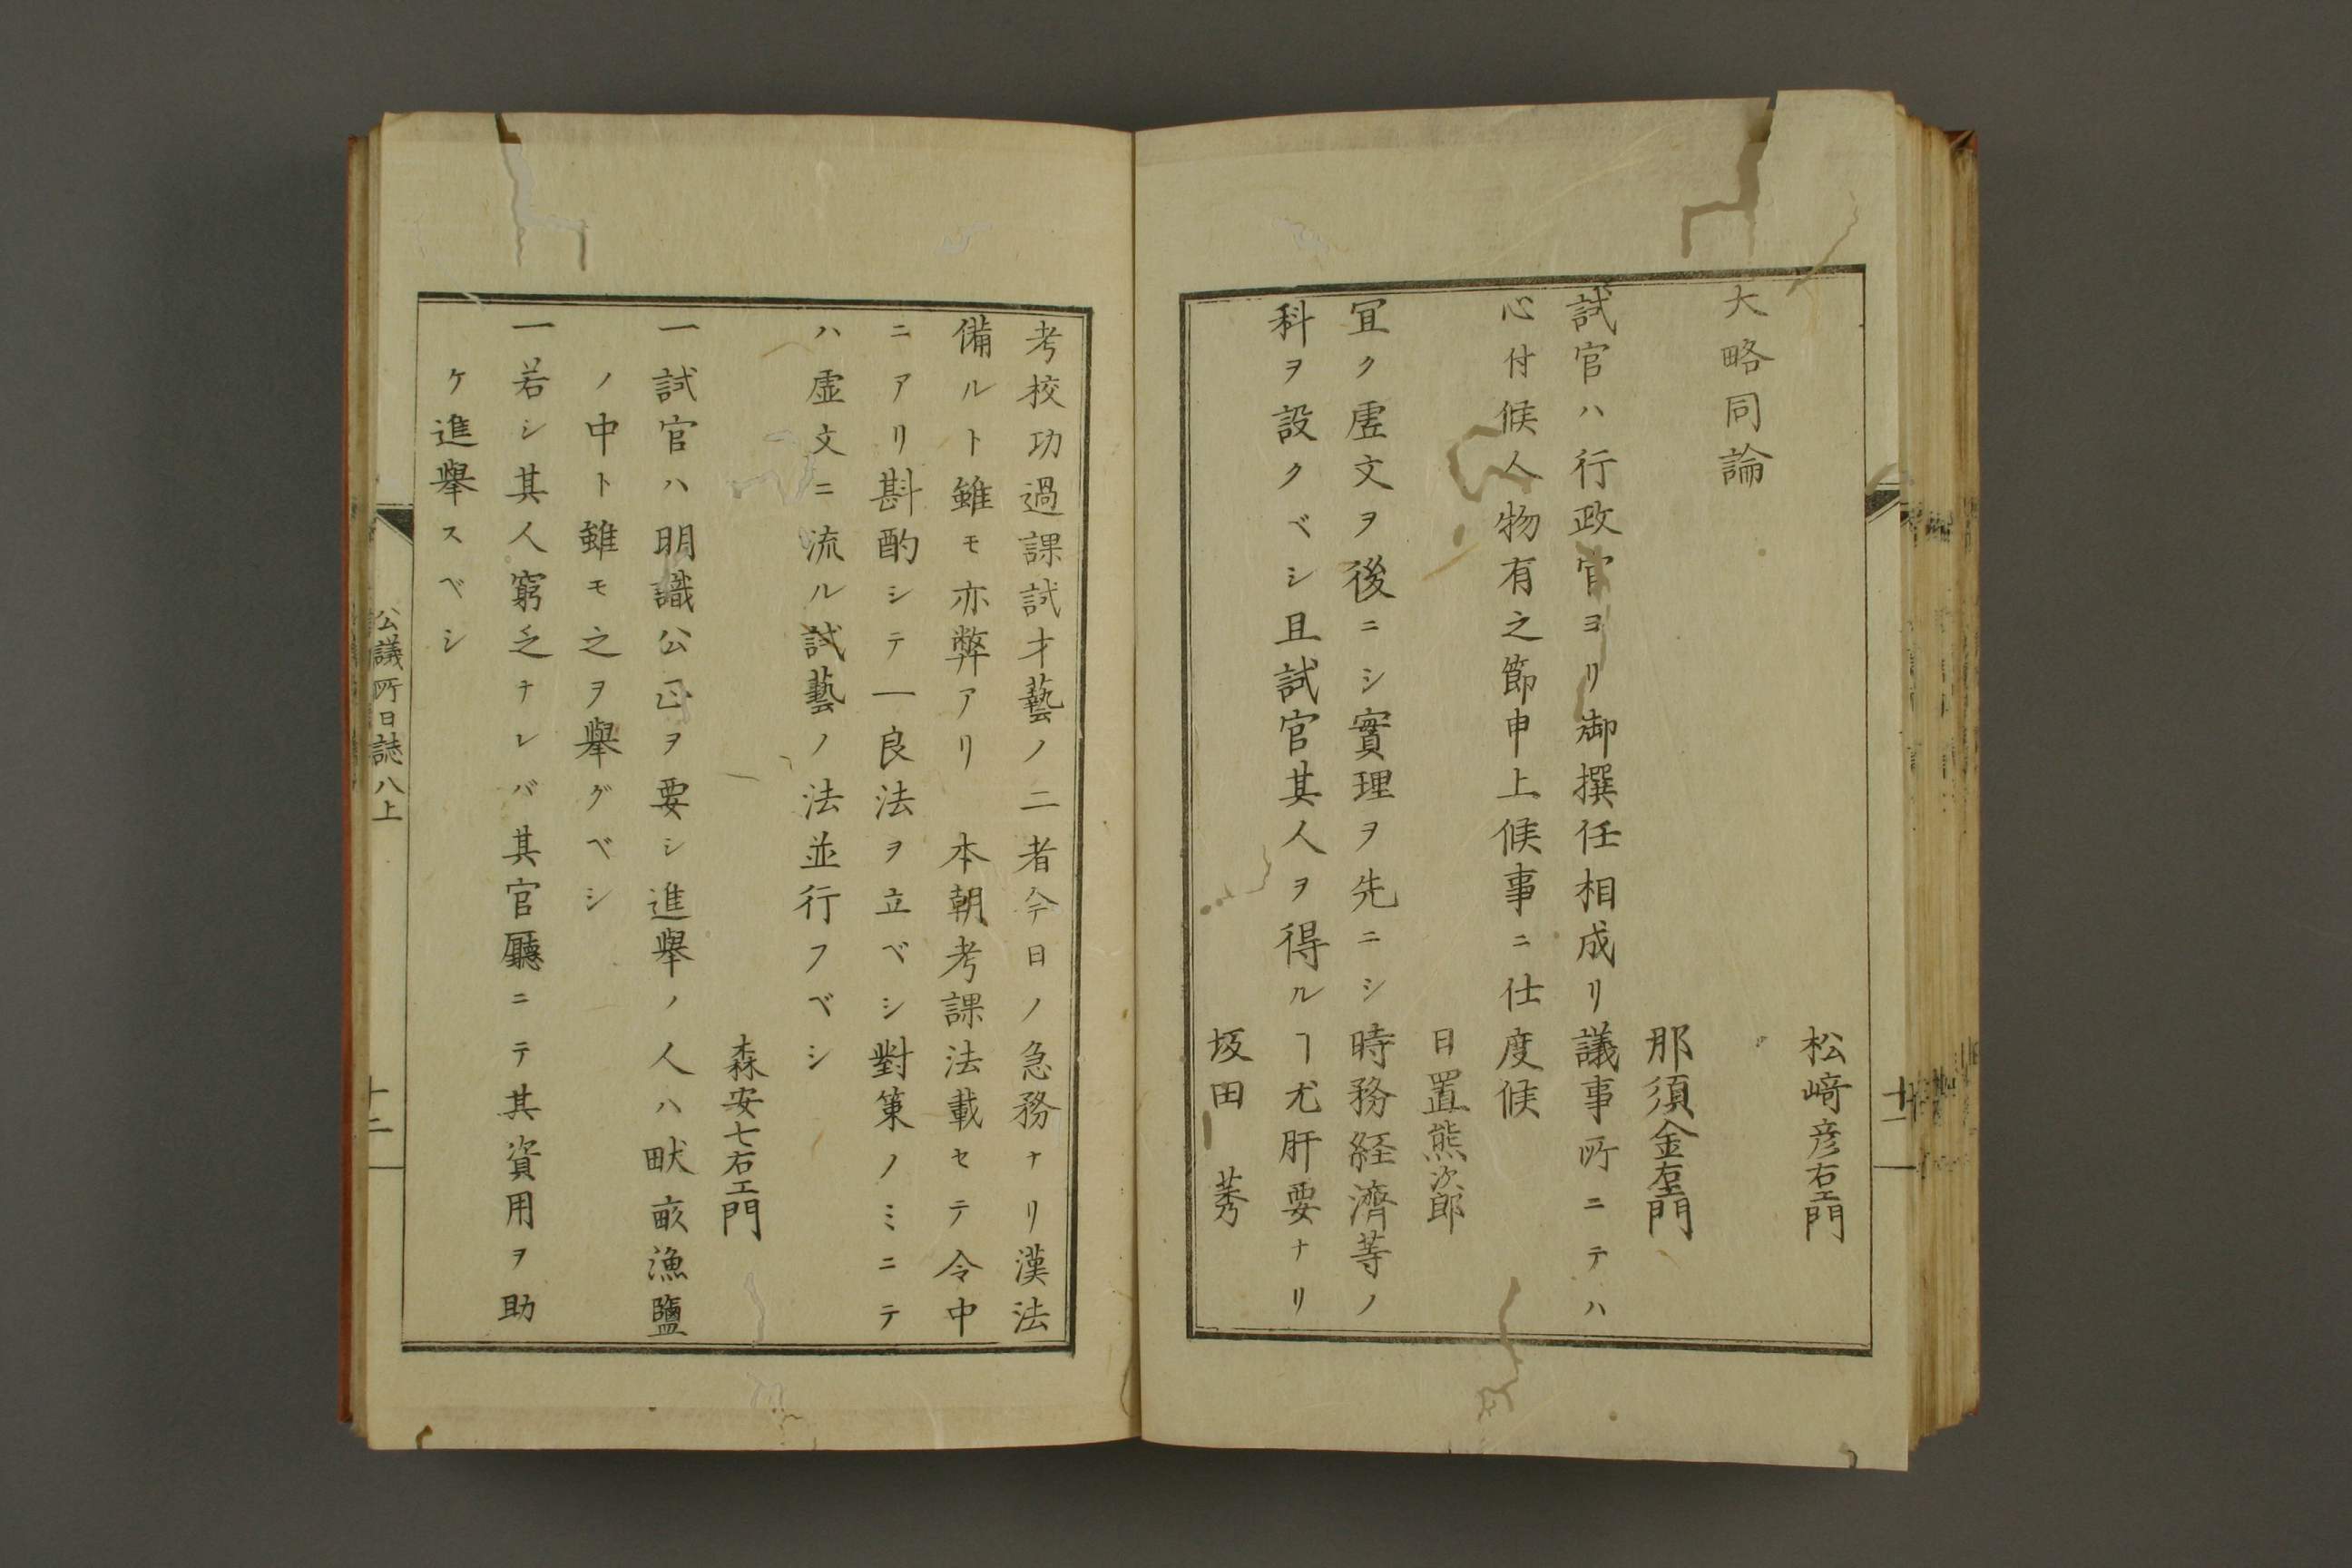 松﨑彦右エ門
大略同論
那須金右エ門
試官ハ行政官ヨリ御撰任相成リ議事所ニテハ
心付候人物有之節申上候事ニ仕度候
日置熊次郎
冝ク虚文ヲ後ニシ實理ヲ先ニシ時務経濟等ノ
科ヲ設クベシ且試官其人ヲ得ルヿ尤肝要ナリ
坂田莠
考校功過課試才藝ノ二者今日ノ急務ナリ漢法
備ルト雖モ亦弊アリ 本朝考課法載セテ令中
ニアリ斟酌シテ一良法ヲ立ベシ對策ノミニテ
ハ虚文ニ流ル試藝ノ法並行フベシ
森安七右エ門
一試官ハ明識公正ヲ要シ進擧ノ人ハ畎畝漁鹽
ノ中ト雖モ之ヲ擧グベシ
一若シ其人窮乏ナレバ其官廳ニテ其資用ヲ助
ケ進擧スベシ
公議所日誌八上
十二